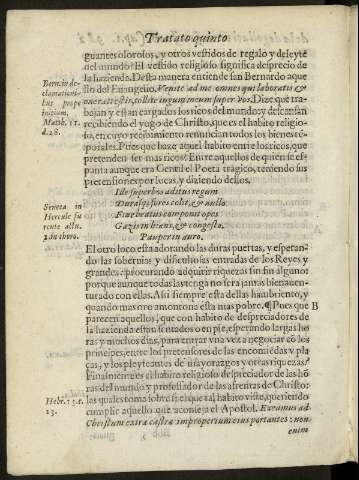 Tratato quinto
guantes olorosos, y otros vestidos de regalo y deleyte
del mundo? El vestido religioso significa desprecio de
la hazienda. Desta manera entiende san Bernardo aque
llo del Euangelio. Venite ad me omnes qui laboratis &
onerati estis, tollite iugum meum super vos. Dize que tra-
bajan y estan cargados los ricos del mundo: y descansan
recibiendo el yogo de Christo, que es el habito religio-
so, en cuyo recibimiento renuncian todos los bienes te-
porales. Pues que haze aquel habito entre los ricos, que
pretenden ser mas ricos? Entre aquellos de quien se es-
panta aunque era Gentil el Poeta tragico, teniendo sus
pretensiones por locas, y diziendo dellos.
Ille superbos aditus regum
Durasq; fores colit, & nullo
Fine beatus componit opes
Gazis inhians, & congesto
Pauper in auro.
El otro loco esta adorando las duras puertas, y esperan-
do las soberuias y dificultosas entradas de los Reyes y
grandes: procurando adquirir riquezas sin fin alguno:
porque aunque todas las tenga no sera jamas bienauen-
turado con ellas. Assi siempre esta dellas hambriento, y
quando mas oro amontona esta mas pobre. ¶ Pues que
parecen aquellos, que con habito de despreciadores de
la hazienda estan sentados o en pie, esperando largas ho
ras y muchos dias, para entrar vna vez a negociar cō los
principes, entre los pretensores de las encomiēdas y pla
ças, y los pleyteantes de mayorazgos y otras riquezas?
Finalmente es el habito religioso despreciador de las hō
ras del mundo y professador de las afrentas de Christo:
las quales toma sobre si el que tal habito viste, queriendo
cumplir aquello que aconseja el Apostol. Exeamus ad
Christum extra castra improperium eius portantes: non
enim
Bern. in de
clamationi-
bus prope
initium.
Matth. 11.
d. 28.
Seneca in
Hercule fu
rente actu.
2. in choro.
B
Hebr. 13. c.
13.